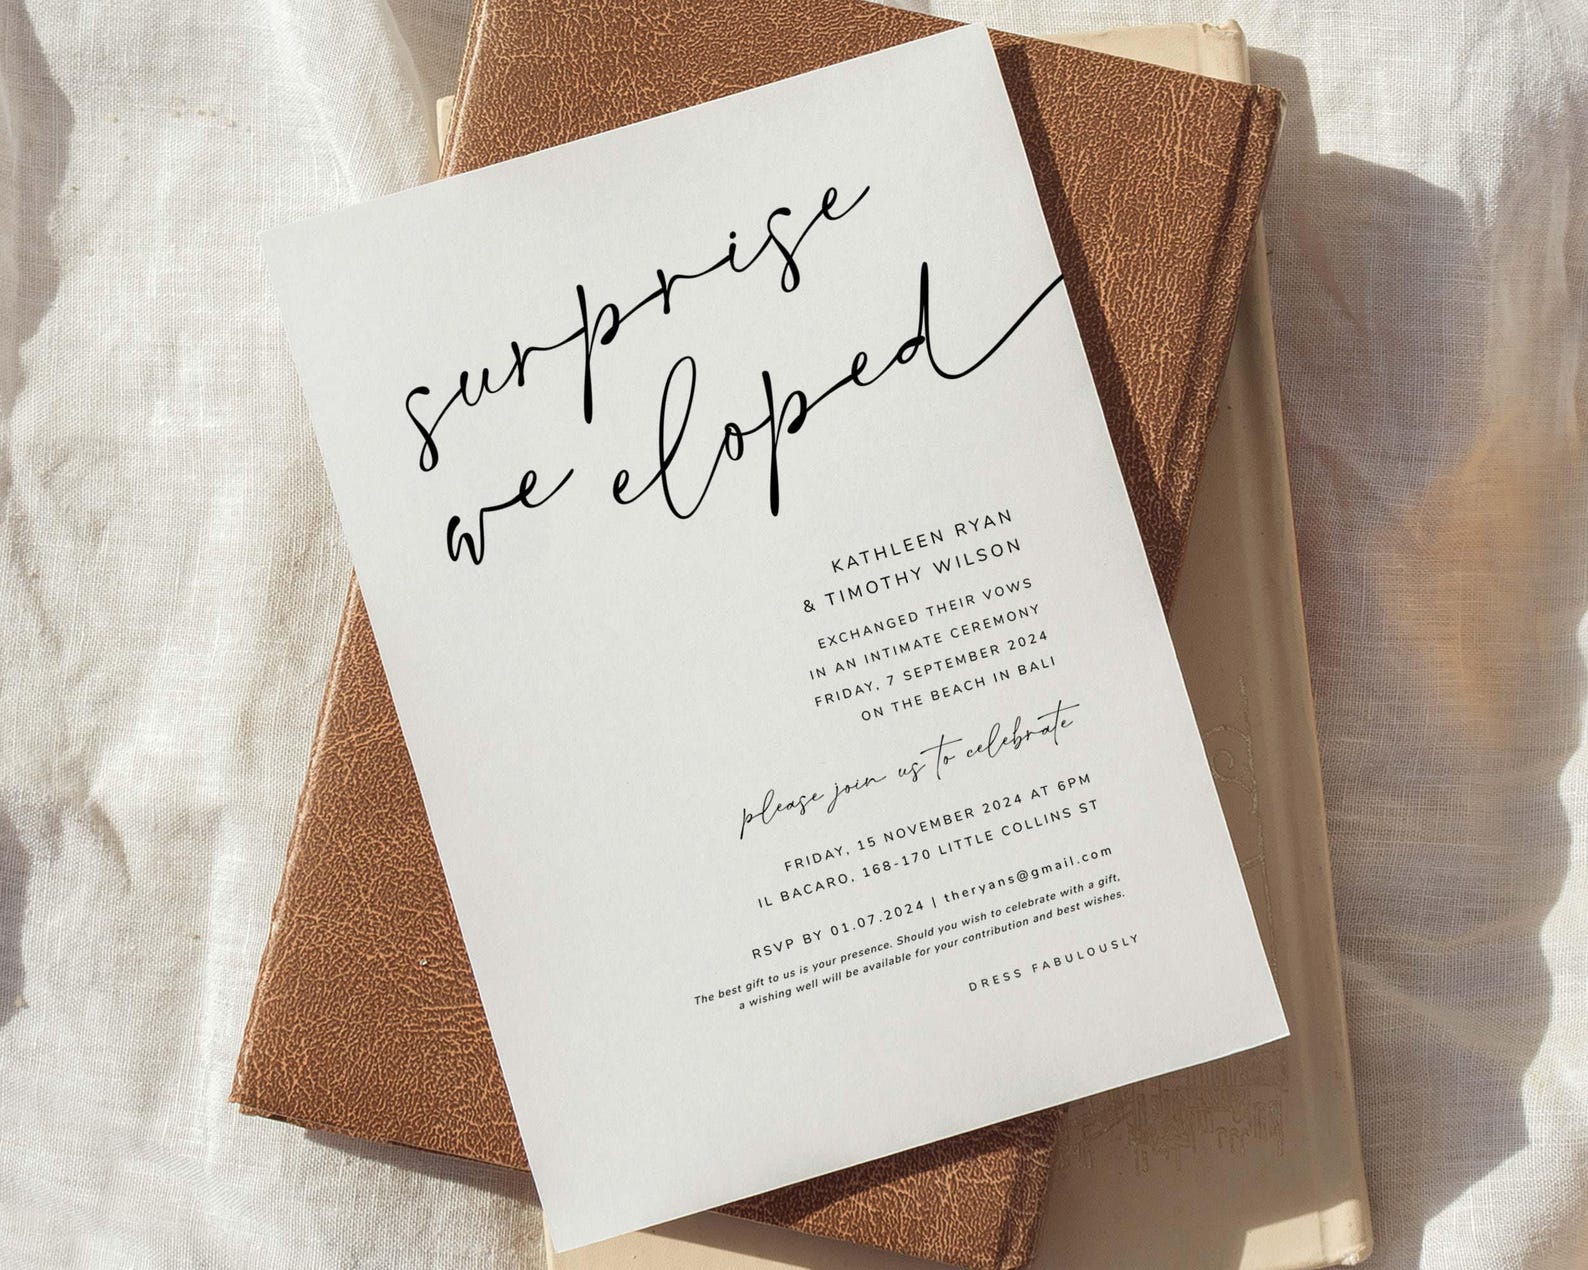 surprise
we eloped
KATHLEEN RYAN
& TIMOTHY WILSON
EXCHANGED THEIR VOWS
IN AN INTIMATE CEREMONY
FRIDAY, 7 SEPTEMBER 2024
ON THE BEACH IN BALI
please join us to celebrate
FRIDAY, 15 NOVEMBER 2024 AT 6PM
IL BACARO, 168-170 LITTLE COLLINS ST
RSVP BY 01.07.2024 | theryans@gmail.com
The best gift to us is your presence. Should you wish to celebrate with a gift,
a wishing well will be available for your contribution and best wishes.
DRESS FABULOUSLY